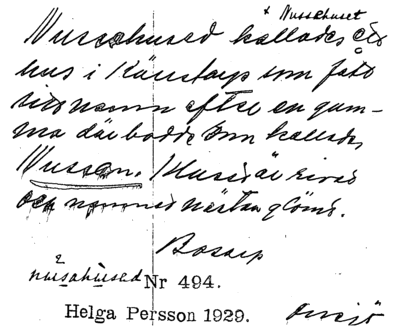 x Nussahuset
Nussahused kallades ett
hus i Känstorp som fått
sitt namn efter en gum-
ma där bodde som kallades
Nussan. Huset är rivet
och namnet nästan glömt.
Bosarp
nusahused Nr 494.
Helga Persson 1929.